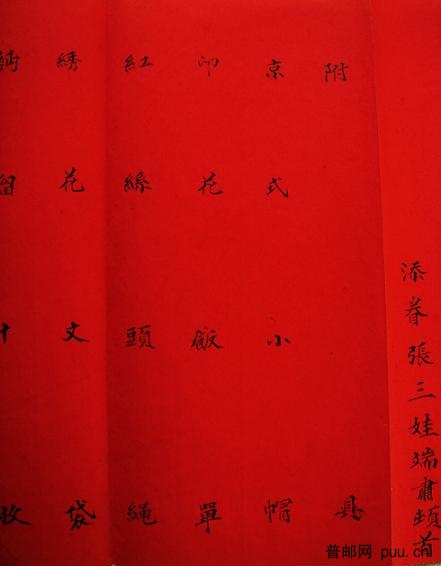 添眷張三娃端肅頓首
附具
京式小帽
印花飯單
紅絲頭繩
綉花文袋
普邮网 puu.cn